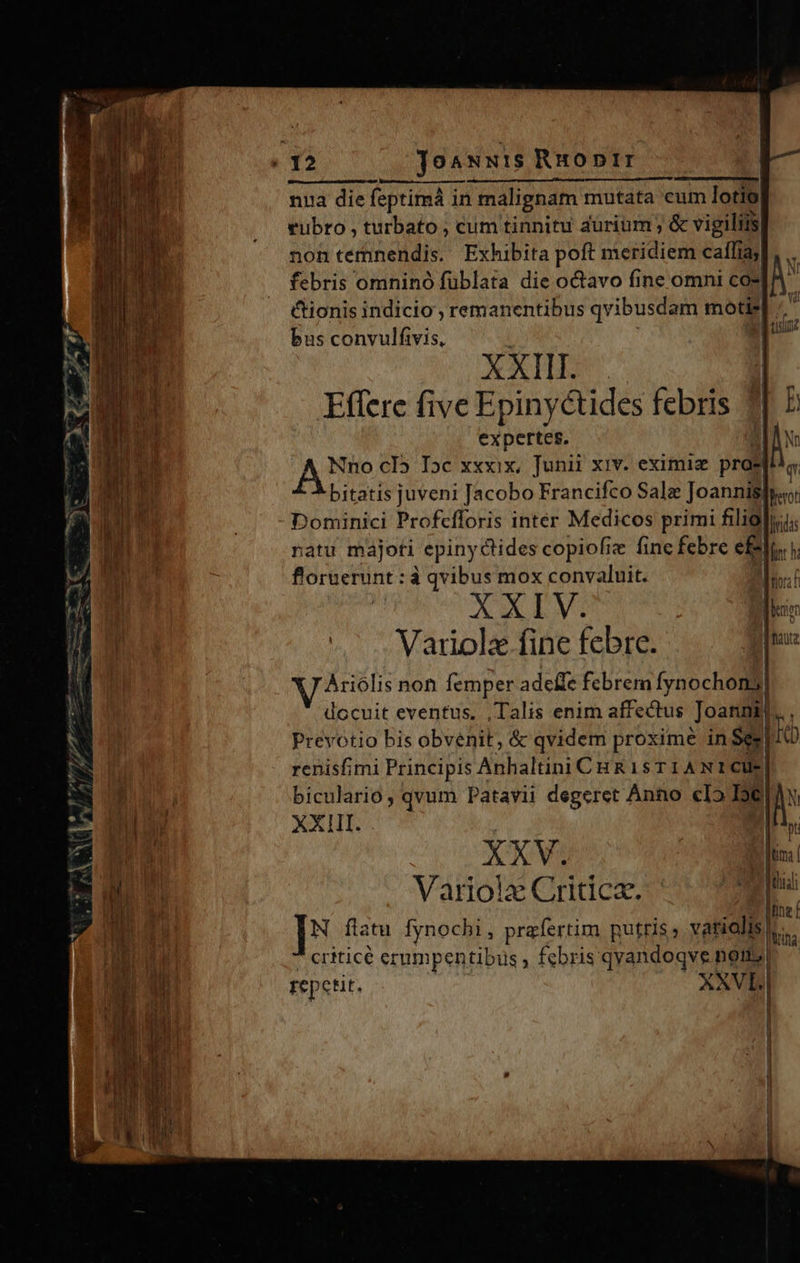 12 JOANNIS RHODII
nua die ſeptimâ in malignam mutata cum lotio
rubro, turbato, cum tinnitu aurium, & vigiliis
non temnendis. Exhibita poſt meridiem caſſia,
febris omninò ſublata die octavo ſine omni co-
ctionis indicio, remanentibus qvibusdam moti-
bus convulſivis.
XXIII.
Eſſere ſive Epinyctides febris
expertes.
ANno cIↄ Iↄc xxxix. Junii xiv. eximiæ pro-
bitatis juveni Jacobo Franciſco Salæ Joannis
Dominici Profeſſoris inter Medicos primi filio
natu majori epinyctides copioſiæ ſine febre ef-
floruerunt: à qvibus mox convaluit.
XXIV.
Variolæ ſine febre.
VAriólis non ſemper adeſſe febrem ſynochon,
docuit eventus. Talis enim affectus Joanni
Prevotio bis obvenit, & qvidem proximè in Se-
renisſimi Principis Anhaltini CHRISTIANI cu-
biculario, qvum Patavii degeret Anno cIↄ Iↄc
XXIII.
XXV.
Variolæ Criticæ.
IN ſtatu ſynochi, præſertim putris, variolis
criticè erumpentibus, febris qvandoqve non
repetit. XXVI.